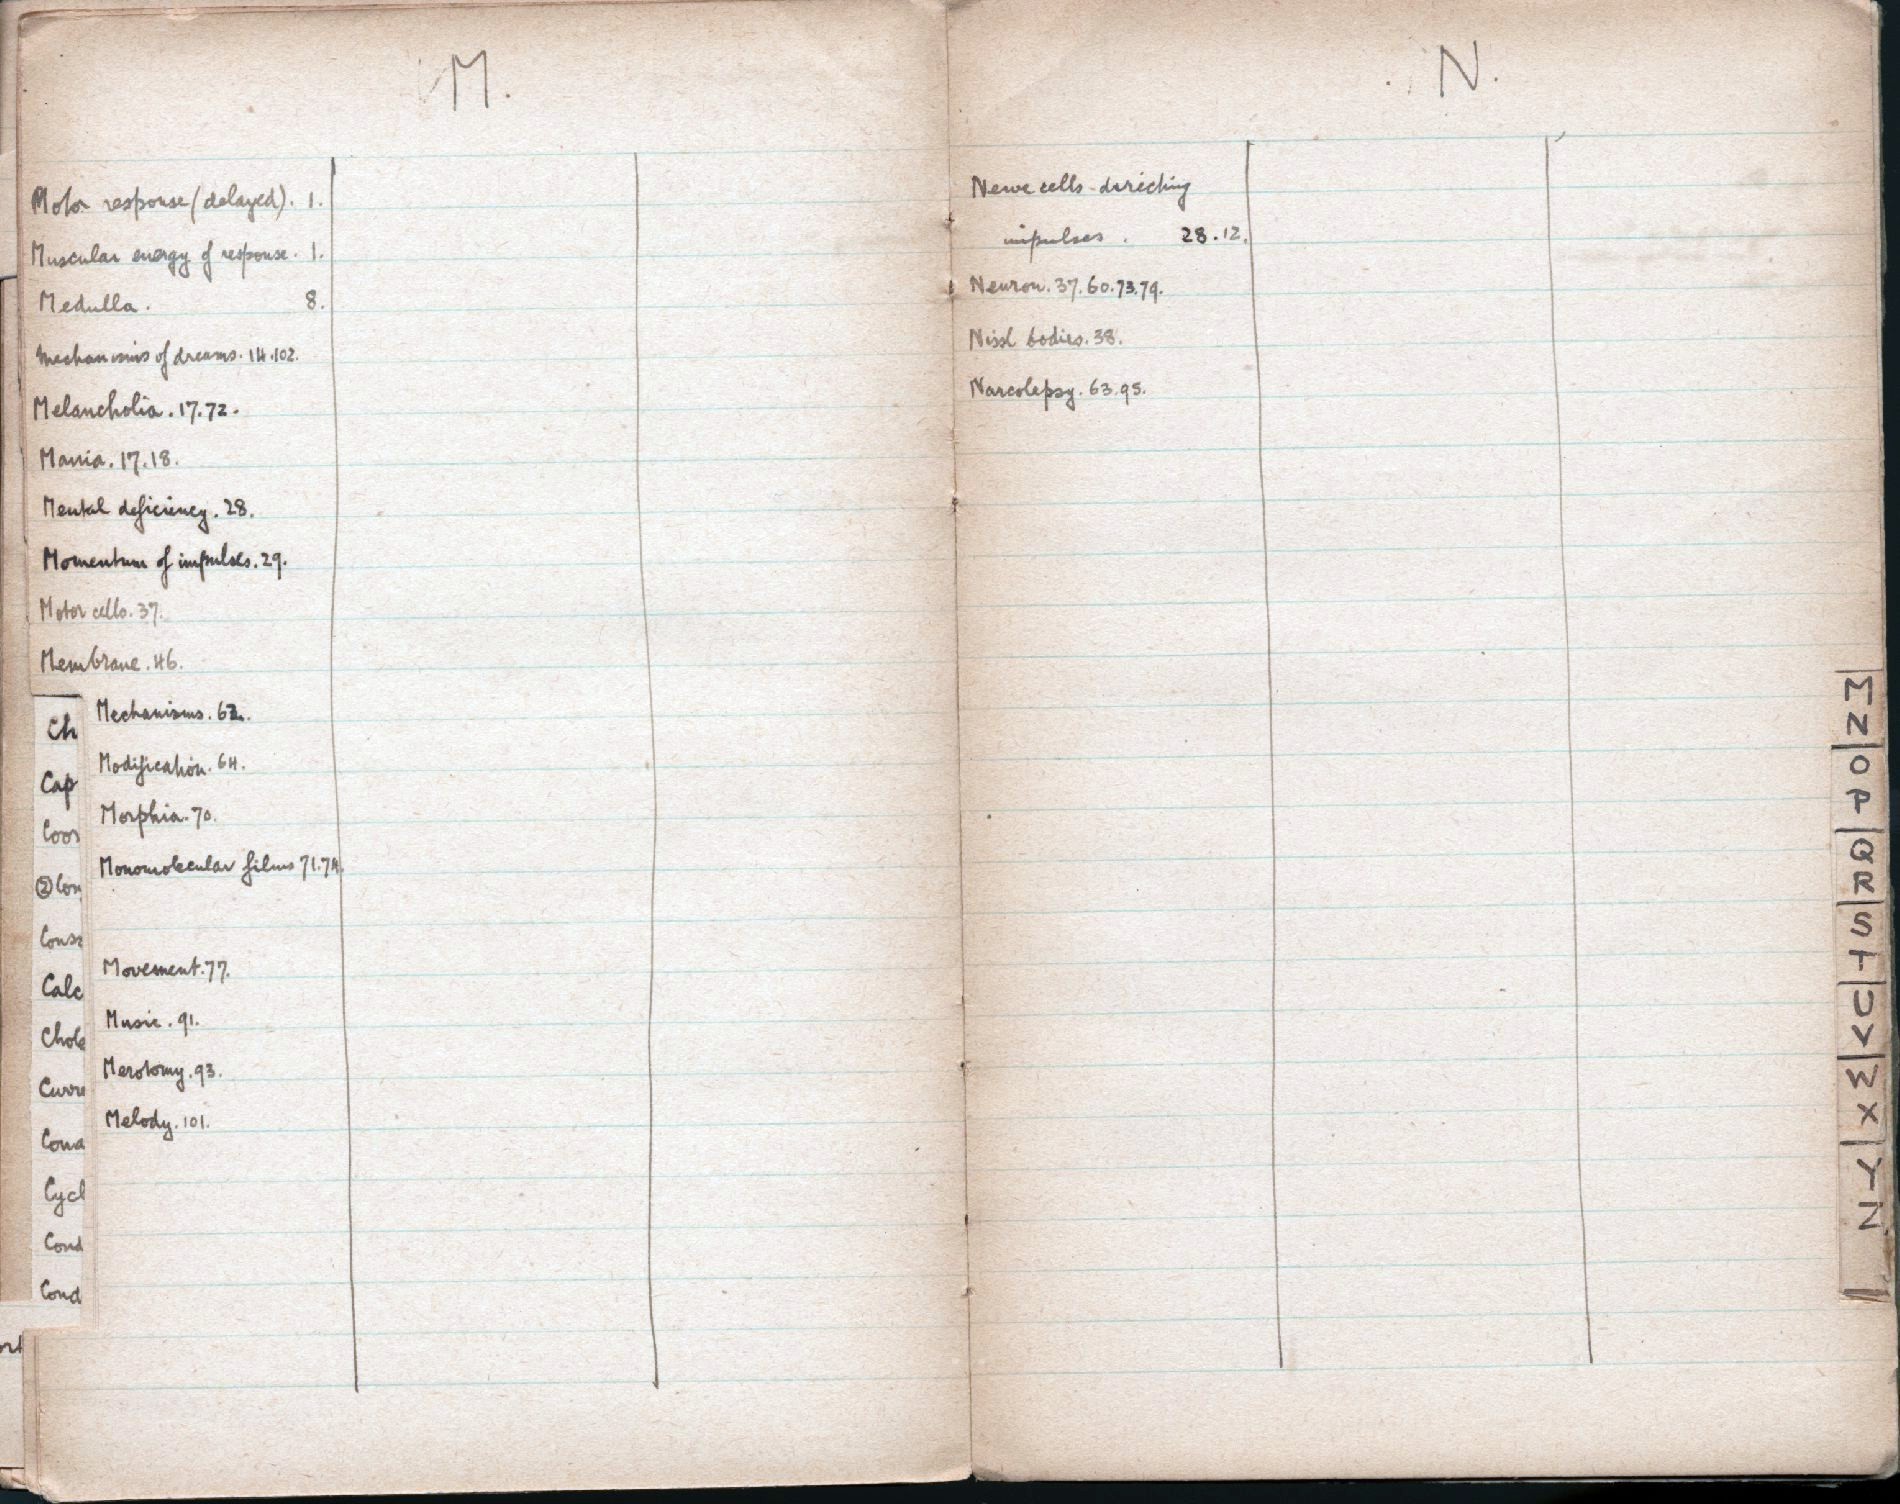 M.
Motor response (delayed). 1.
Muscular energy of response. 1.
Medulla. 8.
Mechanisms of dreams. 14.102.
Melancholia. 17.72.
Mania. 17.18.
Mental deficiency. 28.
Momentum of impulses. 29.
Motor cells. 37.
Membrane. 46.
Mechanisms. 62.
Modification. 64.
Morphia. 70.
Monomolecular films 71.74.
Movement. 77.
Music. 91.
Merotomy. 93.
Melody. 101.
Ch
Cap
Coor
② Con
Cons
Calc
Chole
Curre
Cona
Cycl
Cond
Cond
N.
Nerve cells directing
impulses. 28.12.
Neuron. 37.60.73.79.
Nissl bodies. 38.
Narcolepsy. 63.95.
M
N
O
P
Q
R
S
T
U
V
W
X
Y
Z